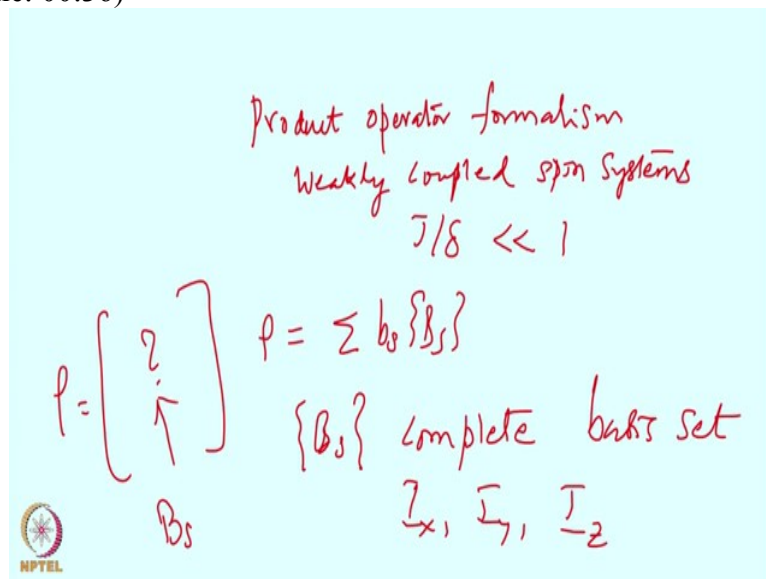 Product operator formalism
Weakly coupled spin systems
J/δ << 1
ρ = [ ? ↑ ] ρ = Σ bs {Bs}
{Bs} complete basis set
Bs Ix, Iy, Iz
NPTEL